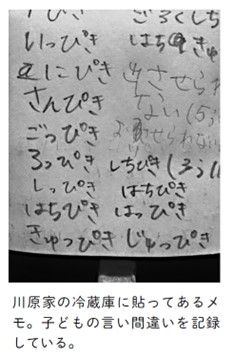 ぴき
いっぴき
にぴき
さんぴき
ごっぴき
ろっぴき
しっぴき
はちぴき
きゅっぴき
ごろくしち
はちきゅ
させられ
ない(5;
せられな
しちぴき(3;11
はちぴき
はっぴき
じゅっぴき
川原家の冷蔵庫に貼ってあるメ
モ。子どもの言い間違いを記録
している。